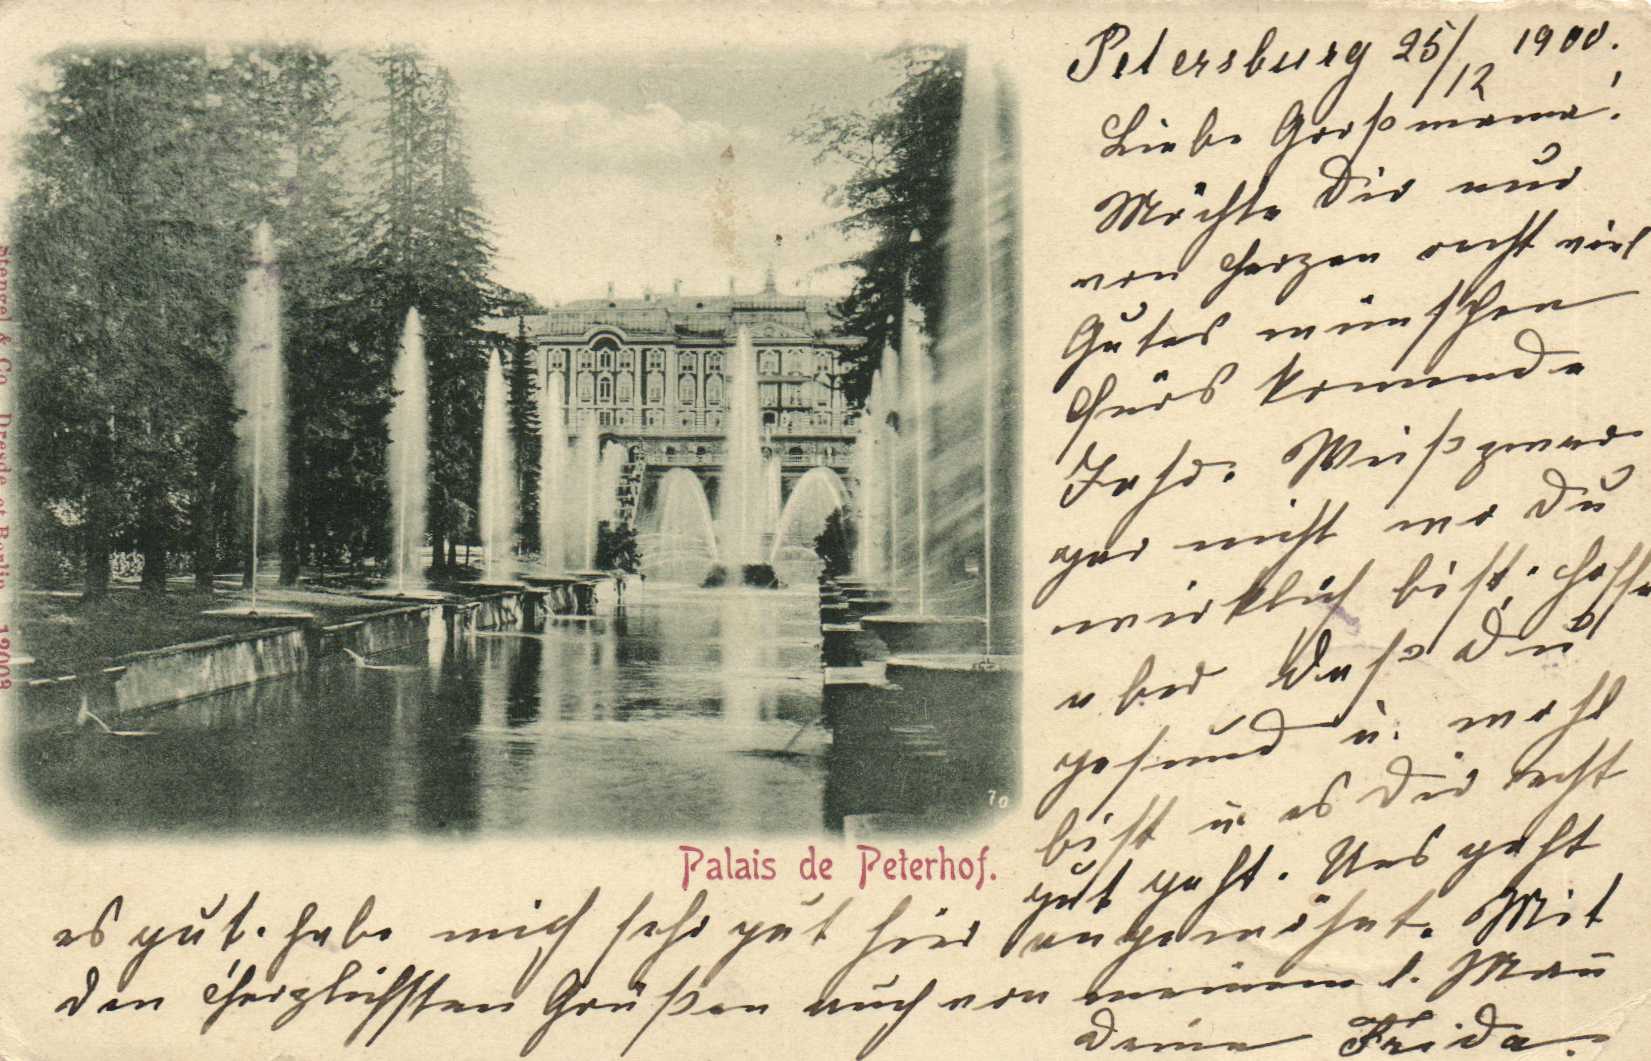 Petersburg 25/12 1900.
Liebe Großmama!
Möchte Dir nur
von Herzen recht viel
Gutes wünschen
fürs kommende
Jahr. Weiß zwar
gar nicht wo Du
wirklich bist, hoffe
aber daß Du
gesund u. wohl
bist u. es Dir recht
gut geht. Uns geht
es gut. habe mich sehr gut hier angewöhnt. Mit
den herzlichsten Grüßen auch von meinem l. Mann
Deine Frida
Palais de Peterhof.
70
Stengel & Co., Dresde et Berlin 12003